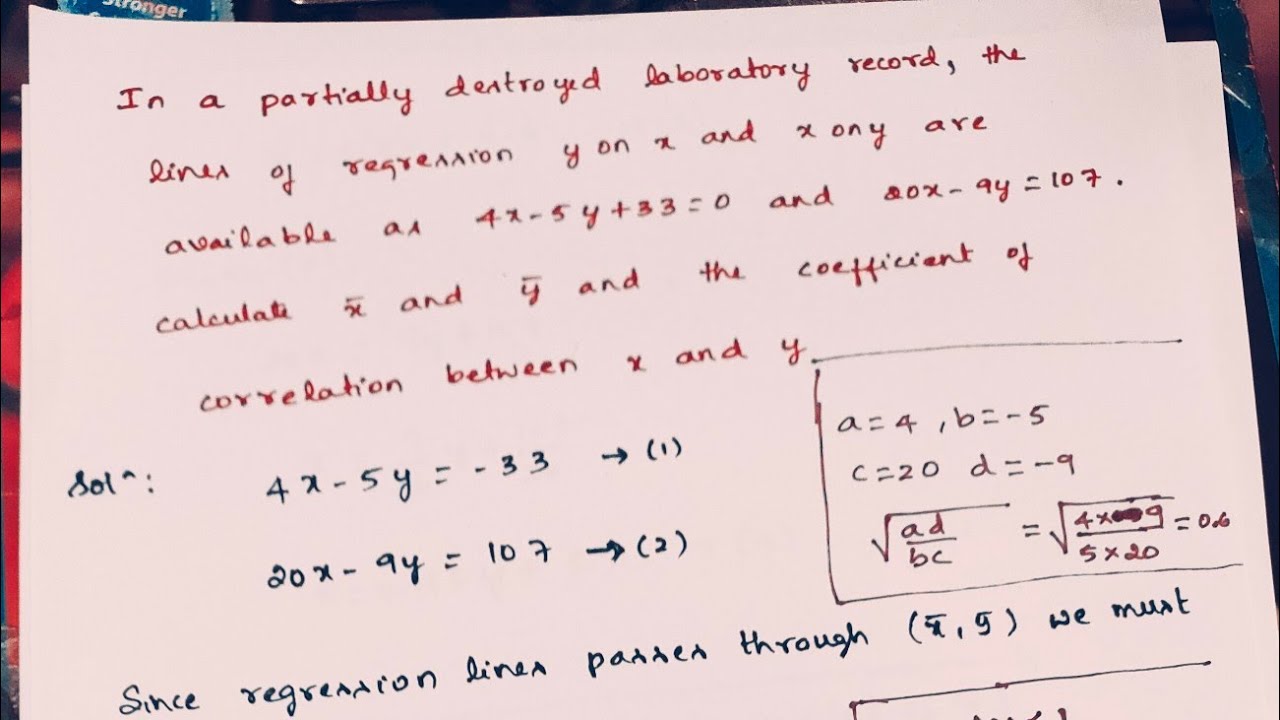 Stronger
In a partially destroyed laboratory record, the
lines of regression y on x and x on y are
available as 4x-5y+33=0 and 20x-9y=107.
calculate x̄ and ȳ and the coefficient of
correlation between x and y
a=4, b=-5
c=20 d=-9
√(ad/bc) = √(4×9/5×20) = 0.6
Solⁿ: 4x-5y = -33 → (1)
20x-9y = 107 → (2)
Since regression lines passes through (x̄, ȳ) we must